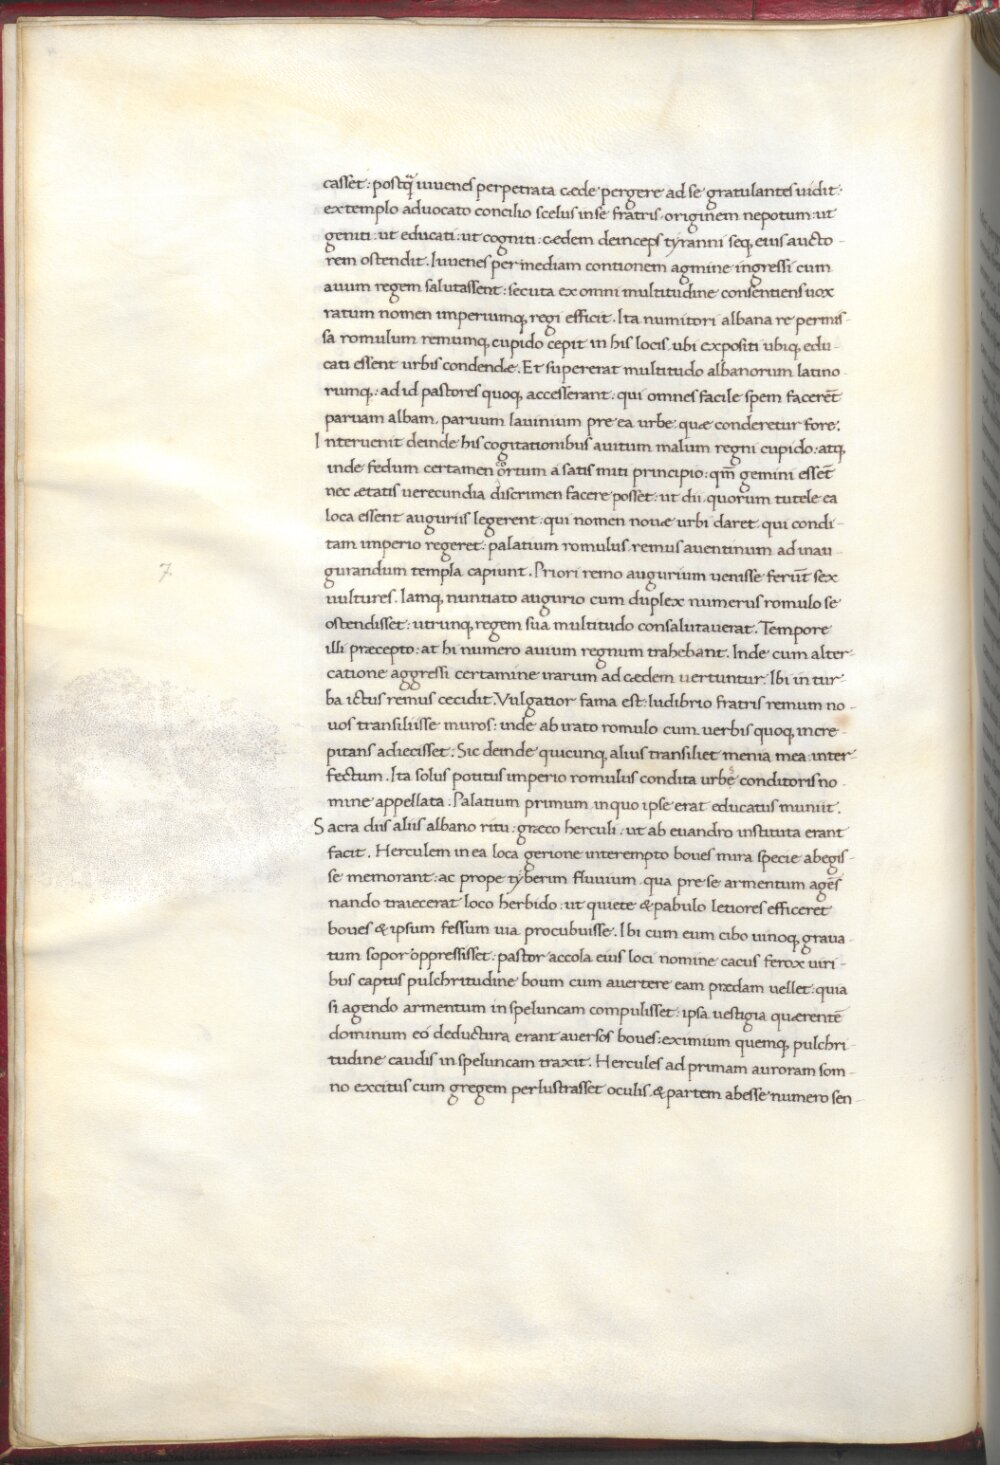 casset: postq̃ iuuenes perpetrata cæde pergere ad se gratulantes uidit:
extemplo aduocato concilio scelus in se fratris. originem nepotum: ut
geniti: ut educati: ut cogniti: cædem deinceps tyranni seq, eius aucto-
rem ostendit. Iuuenes per mediam contionem agmine ingressi cum
auum regem salutassent: secuta ex omni multitudine consentiens uox
ratum nomen imperiumq, regi efficit. Ita numitori albana re permis-
sa romulum remumq, cupido cepit in his locis ubi expositi ubiq, edu-
cati essent urbis condendæ. Et supererat multitudo albanorum latino-
rumq,: ad id pastores quoq, accesserant: qui omnes facile spem facerēt
paruam albam. paruum lauinium pre ea urbe quæ conderetur fore.
Interuenit deinde his cogitationibus auitum malum regni cupido: atq,
inde fedum certamen cortum a satis miti principio: qm̄ gemini essēt
nec ætatis uerecundia discrimen facere posset: ut dii. quorum tutele ea
loca essent auguriis legerent. qui nomen nouæ urbi daret. qui condi-
tam imperio regeret: palatium romulus. remus auentinum ad inau-
gurandum templa capiunt. Priori remo augurium uenisse ferūt sex
uultures. Iamq, nuntiato augurio cum duplex numerus romulo se
ostendisset: utrunq, regem sua multitudo consalutauerat. Tempore
illi præcepto: at hi numero auium regnum trahebant. Inde cum alter-
catione aggressi certamine irarum ad cædem uertuntur. Ibi in tur-
ba ictus remus cecidit. Vulgatior fama est: ludibrio fratris remum no-
uos transiluisse muros: inde ab irato romulo cum uerbis quoq, incre-
pitans adiecisset: Sic deinde quicunq, alius transiliet menia mea: inter-
fectum. Ita solus potitus imperio romulus condita urbs conditoris no-
mine appellata. Palatium primum in quo ipse erat educatus muniit.
Sacra diis aliis albano ritu: græco herculi. ut ab euandro instituta erant
facit. Herculem in ea loca gerione interempto boues mira specie abegis-
se memorant: ac prope tyberim fluuium. qua pre se armentum agēs
nando traiecerat loco herbido: ut quiete & pabulo letiores efficeret
boues & ipsum fessum uia procubuisse. Ibi cum eum cibo uinoq, graua-
tum sopor oppressisset: pastor accola eius loci nomine cacus ferox uiri-
bus captus pulchritudine boum cum auertere eam prædam uellet: quia
si agendo armentum in speluncam compulisset: ipsa uestigia quærentē
dominum eo deductura erant auersos boues: eximium quemq, pulchri-
tudine caudis in speluncam traxit. Hercules ad primam auroram som-
no excitus cum gregem perlustrasset oculis. & partem abesse numero sen-
7